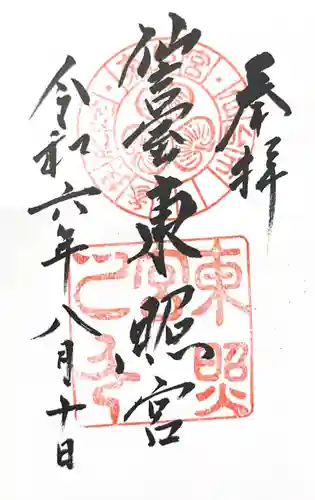 奉拝
仙臺東照宮
令和六年八月十日
東照
宮